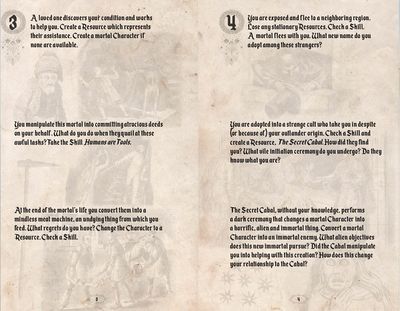 3
A loved one discovers your condition and works
to help you. Create a Resource which represents
their assistance. Create a mortal Character if
none are available.
You manipulate this mortal into committing atrocious deeds
on your behalf. What do you do when they quail at these
awful tasks? Take the Skill Humans are Tools.
At the end of the mortal's life you convert them into a
mindless meat machine, an undying thing from which you
feed. What regrets do you have? Change the Character to a
Resource. Check a Skill.
3
4
You are exposed and flee to a neighboring region.
Lose any stationary Resources. Check a Skill.
A mortal flees with you. What new name do you
adopt among these strangers?
You are adopted into a strange cult who take you in despite
(or because of) your outlander origin. Check a Skill and
create a Resource, The Secret Cabal. How did they find
you? What vile initiation ceremony do you undergo? Do they
know what you are?
The Secret Cabal, without your knowledge, performs
a dark ceremony that changes a mortal Character into
a horrific, alien and immortal thing. Convert a mortal
Character into an immortal enemy. What alien objectives
does this new immortal pursue? Did the Cabal manipulate
you into helping with this creation? How does this change
your relationship to the Cabal?
4